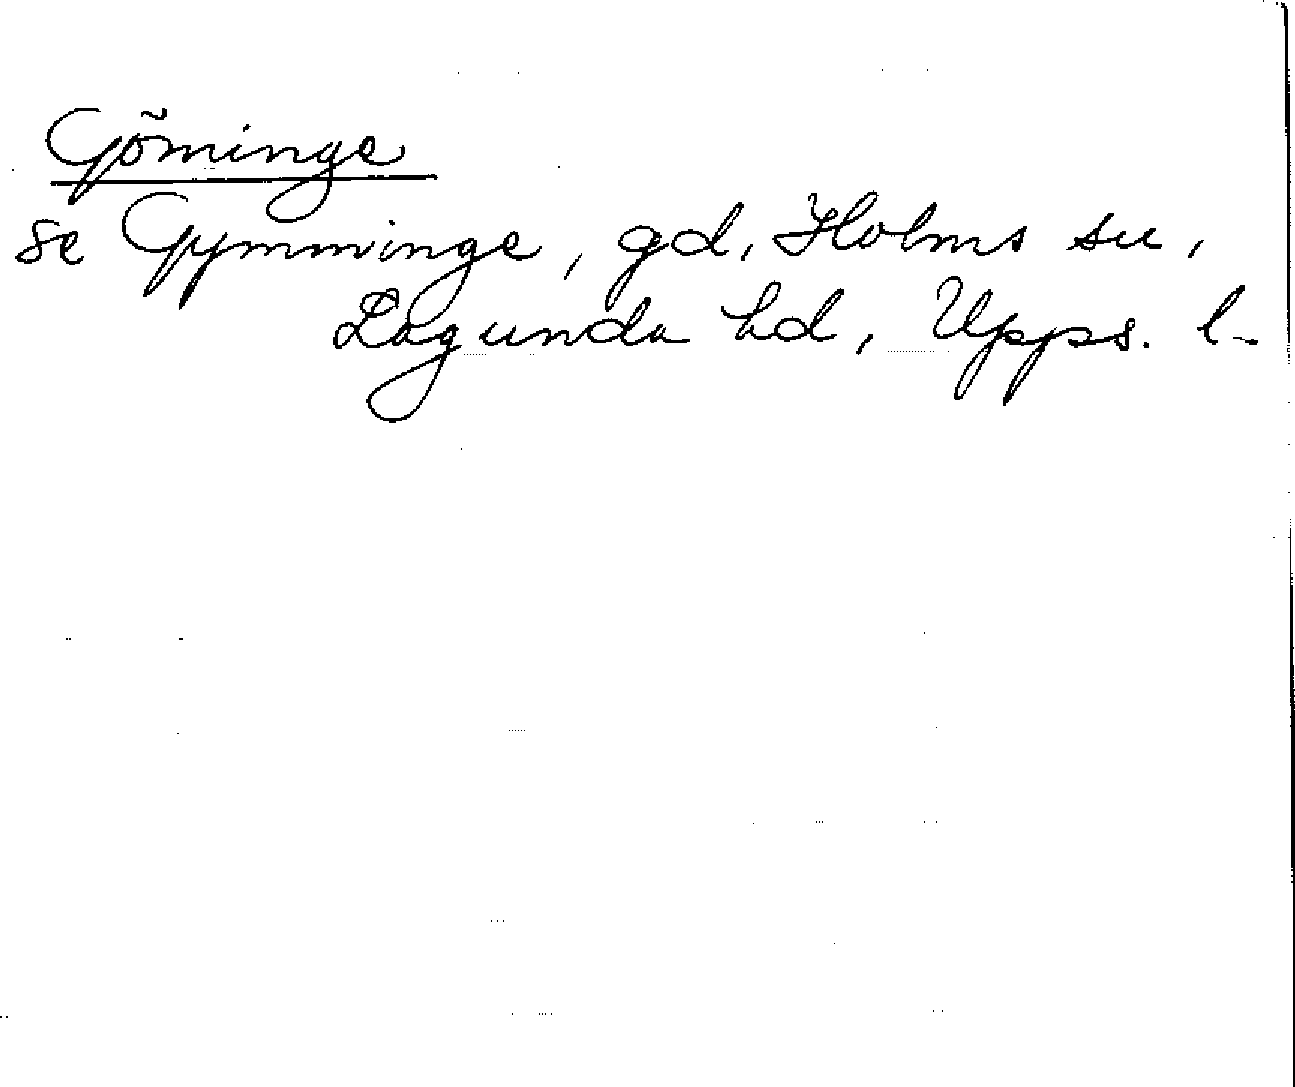 Göminge
se Gymminge, gd, Holms sn,
Lagunda hd, Upps. l.